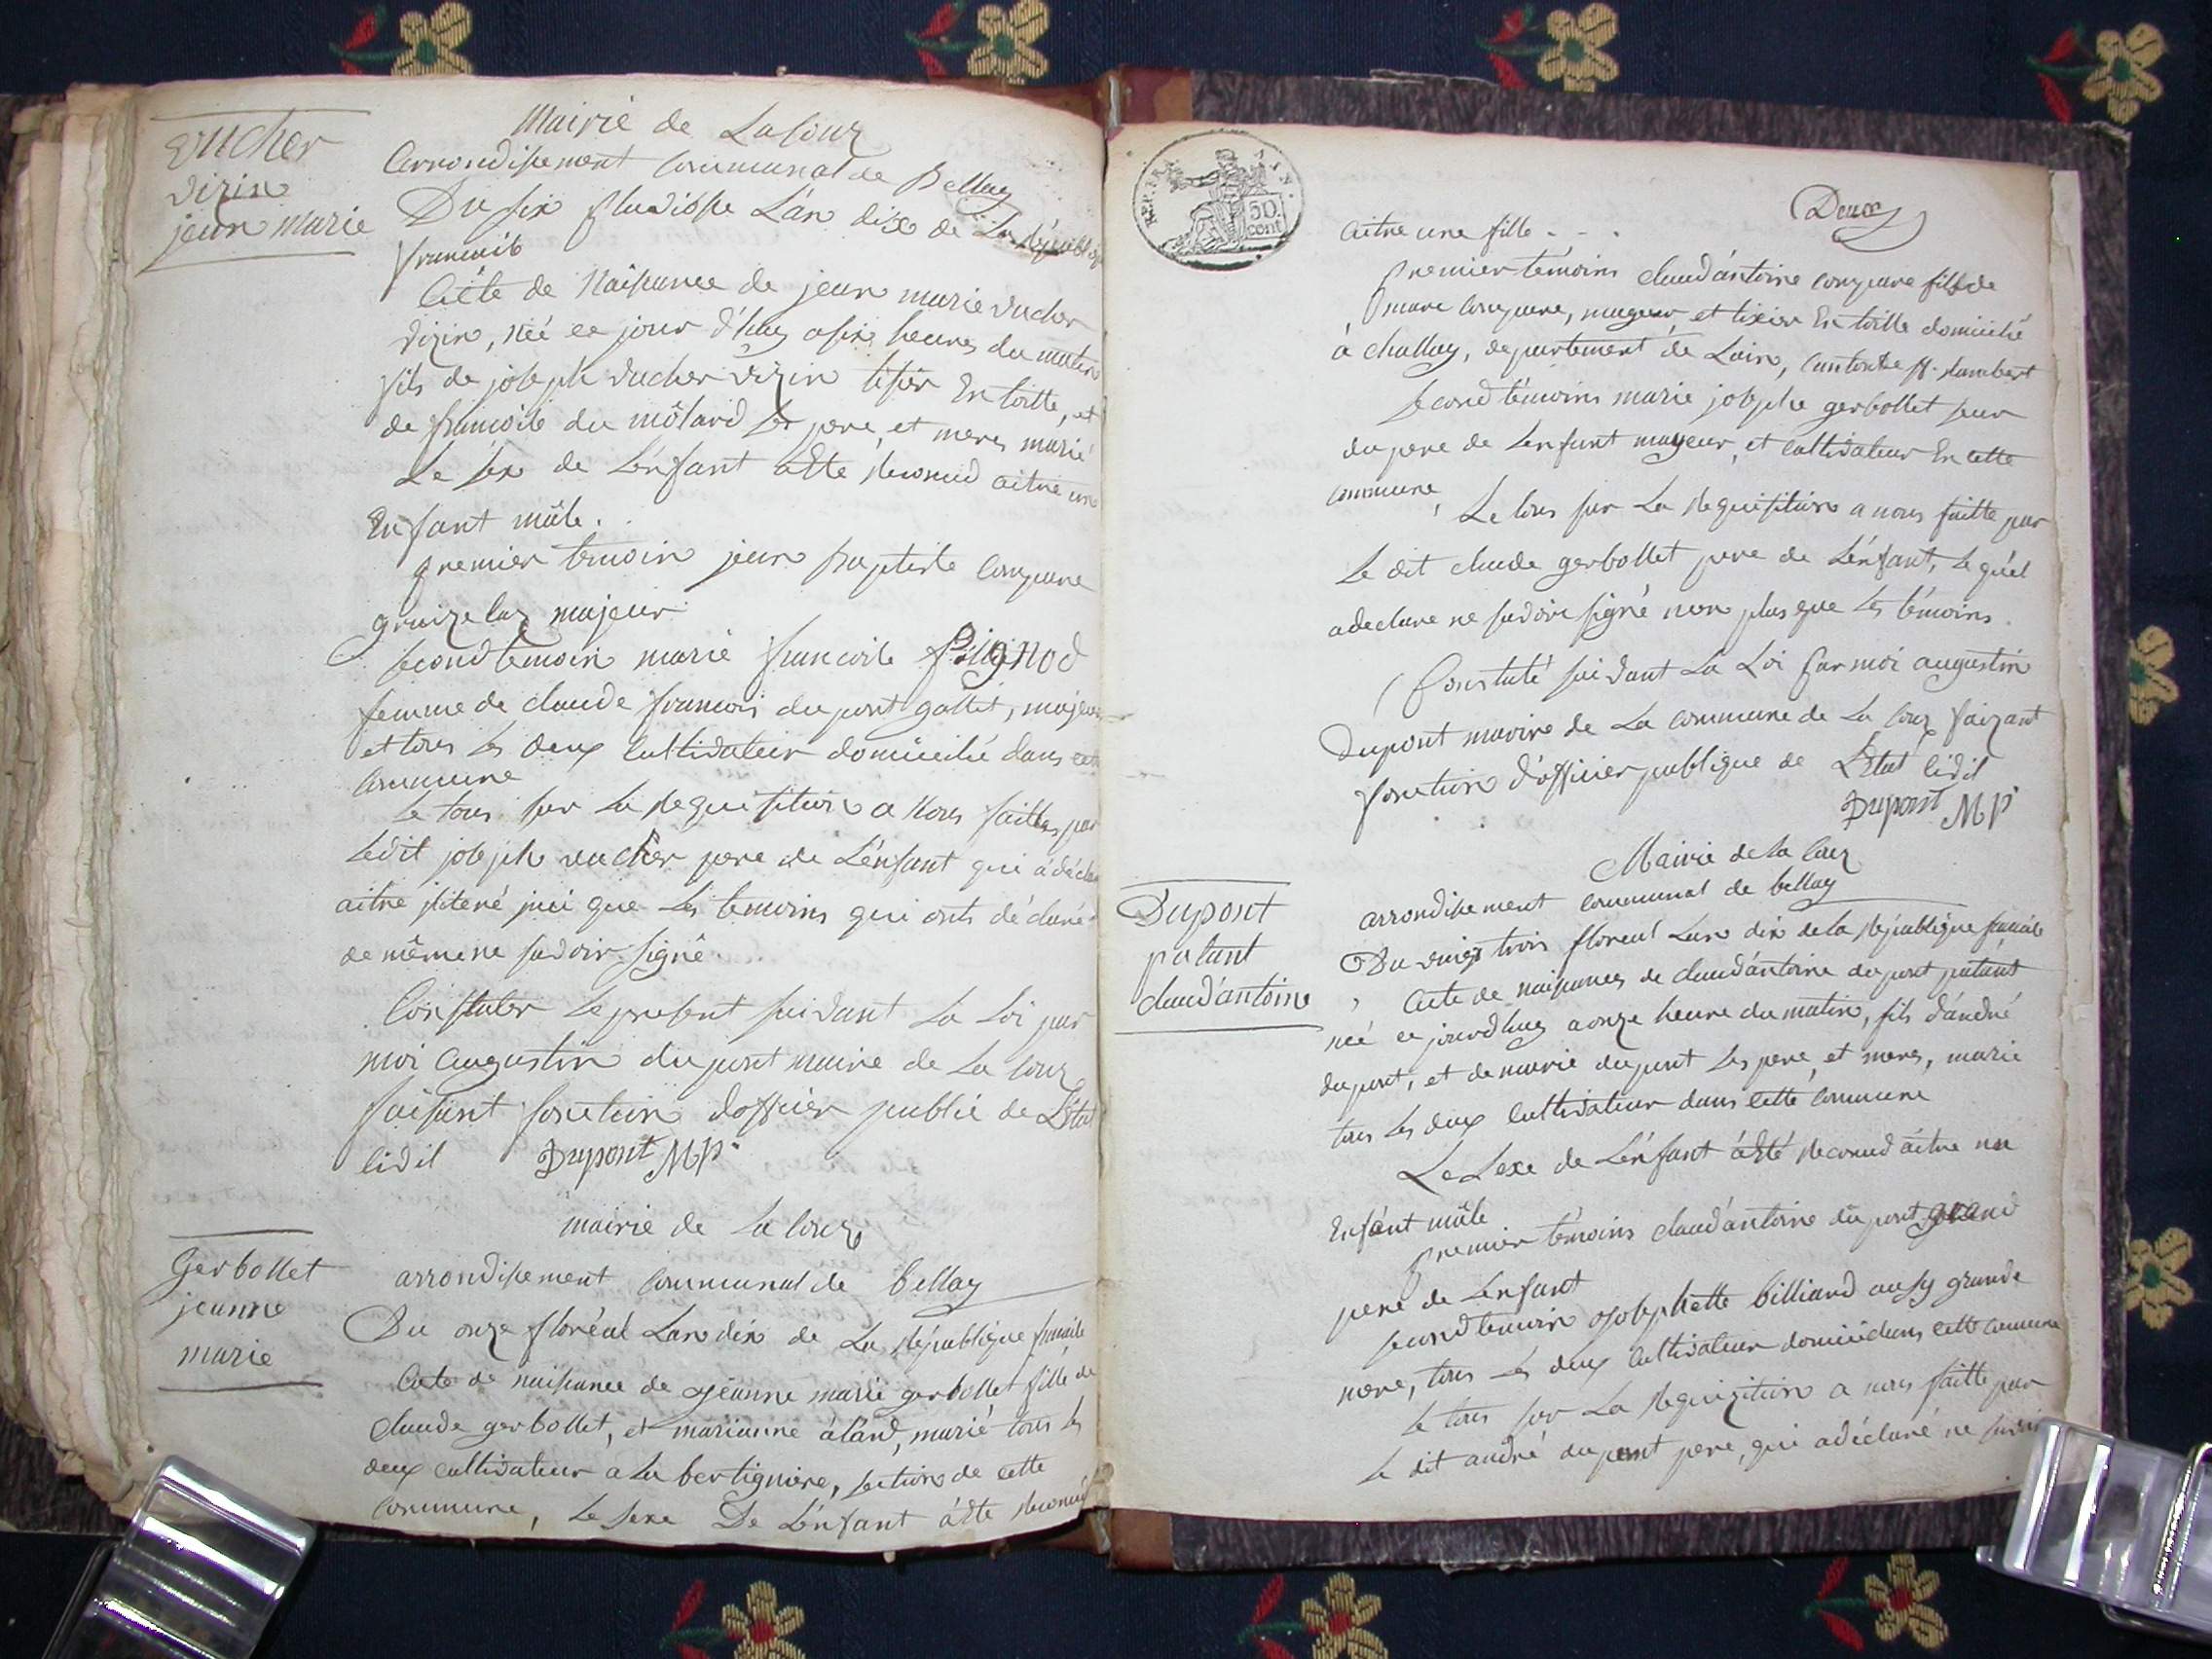 vucher
vizin
jean marie
Mairie de Lacouz
arrondissement communal de Bellay
Du six pluviosse L'an dixe de La Républiq
francoise
Acte de Naissance de jean marie vucher
vizin, néé ce jour d'huy a six heures du matin
fils de joseph vucher vizin tisier En toille, et
de francoise du môlard les pere, et meres marié
Le sexe de L'énfant a Eté reconnud aitre un
Enfant mâle.
premier temoin jean Baptiste compare
graizelaz majeur
second temoin marie francoise pugnod
femme de claude francois dupont gottet, majeur
et tous les deux Cultivateur domicilié dans cette
Commune
Le tous sur La Requisition a Nous faittes par
Ledit joseph vucher pere de L'énfant qui a déclaré
aitre jliteré jnsi que Les temoins qui onts déclaré
de même ne savoir signé
Constater Le present suivant La Loi par
moi augustin dupont maire de La Couz
faisant fonction d'officier public de L'Etat
Civil Dupont M P
mairie de La Couz
Gerbollet
jeanne
marie
arrondissement communal de bellay
Du onze floréal Lan dix de La République francaise
Acte de naissance de jeanne marie gerbollet fille de
claude gerbollet, et marianne áland, marié tous les
deux cultivateur a La bertigniere, section de cette
commune, Le sexe De L'énfant á Eté reconnud
REP. FRA.
50
cent
Deux
aitre une fille - - .
premier témoins claud'antoine compare fils de
marc compare, mageur et tixier En toille domicilié
à challey, departement de Lain, canton de st. rambert
second témoins marie josephe gerbollet seur
du pere de Lenfant mageur, et cultivateur En cette
commune,
Le tous sur La Requisition a nous faitte par
Le dit claude gerbollet pere de L'énfant, Le quel
a declare ne savoir signé non plus que Les témoins.
Constaté suivant La Loi par moi augustin
Dupont maire de La Commune de La Couz faizant
fonction d'officier publique de L'Etat Civil
Dupont M P
Mairie de la Couz
Dupont
patant
claud'antoine
arrondissement communal de bellay
Du vingt trois floreal Lan dix de la République francaise
Acte de naissances de claud'antoine dupont patant
néé ce jourd'huy a onze heure du matin, fils d'andré
dupont, et de marie dupont Les pere, et meres, marie
tous Les deux Cultivateur dans cette Commune
Le Sexe de L'énfant á Eté reconnud aitre un
Enfant mâle
premier témoins claud'antoine dupont grand
pere de Lenfant
second temoin josephette billiard aussy grande
mere, tous les deux Cultivateur domicié dans cette commune
Le tous sur La Requizition a nous faitte par
Le dit andré dupont pere, qui a déclaré ne savoir